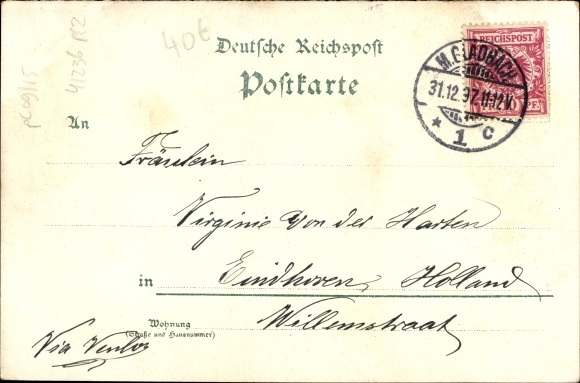 40€
Deutsche Reichspost
Postkarte
REICHSPOST
M. GLADBACH
31.12.97. 11-12 V.
* 1 c
41236 PR2
An
Fräulein
Virginie von der Harten
in Eindhoven, Holland
Wohnung
(Straße und Hausnummer)
Willemstraat
Via Venlo